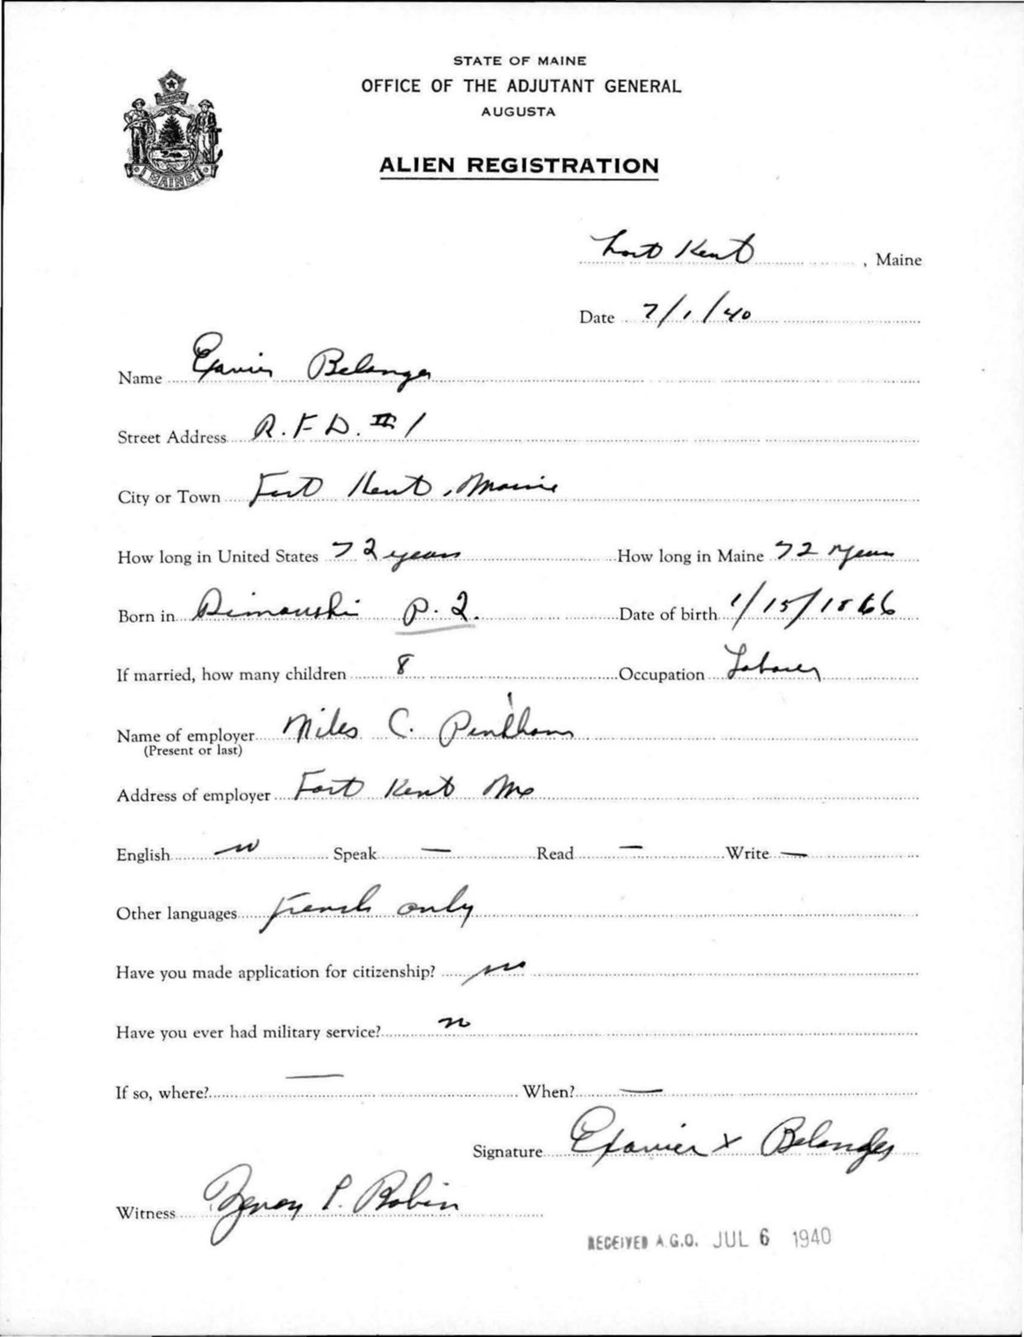 STATE OF MAINE
OFFICE OF THE ADJUTANT GENERAL
AUGUSTA
ALIEN REGISTRATION
MAINE
Fort Kent, Maine
Date 7/1/40
Name Exavier Belanger
Street Address R.F.D. # 1
City or Town Fort Kent, Maine
How long in United States 72 years How long in Maine 72 years
Born in P.Q. Date of birth 1/15/1866
If married, how many children 8 Occupation Laborer
Name of employer Miles C. Pinkham
(Present or last)
Address of employer Fort Kent Me
English no Speak — Read — Write —
Other languages French only
Have you made application for citizenship? no
Have you ever had military service? no
If so, where? — When? —
Signature Exavier x Belanger
Witness P. Robin
RECEIVED A.G.O. JUL 6 1940